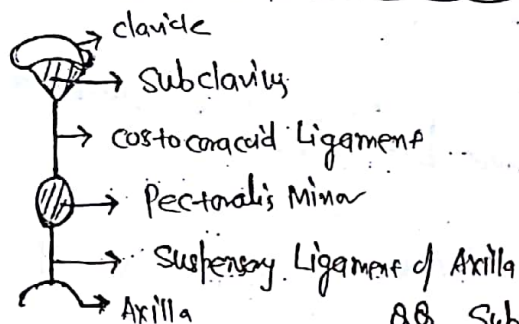 clavicle
Subclavius
costocoracoid Ligament
Pectoralis Minor
Suspensory Ligament of Axilla
Axilla
Sub